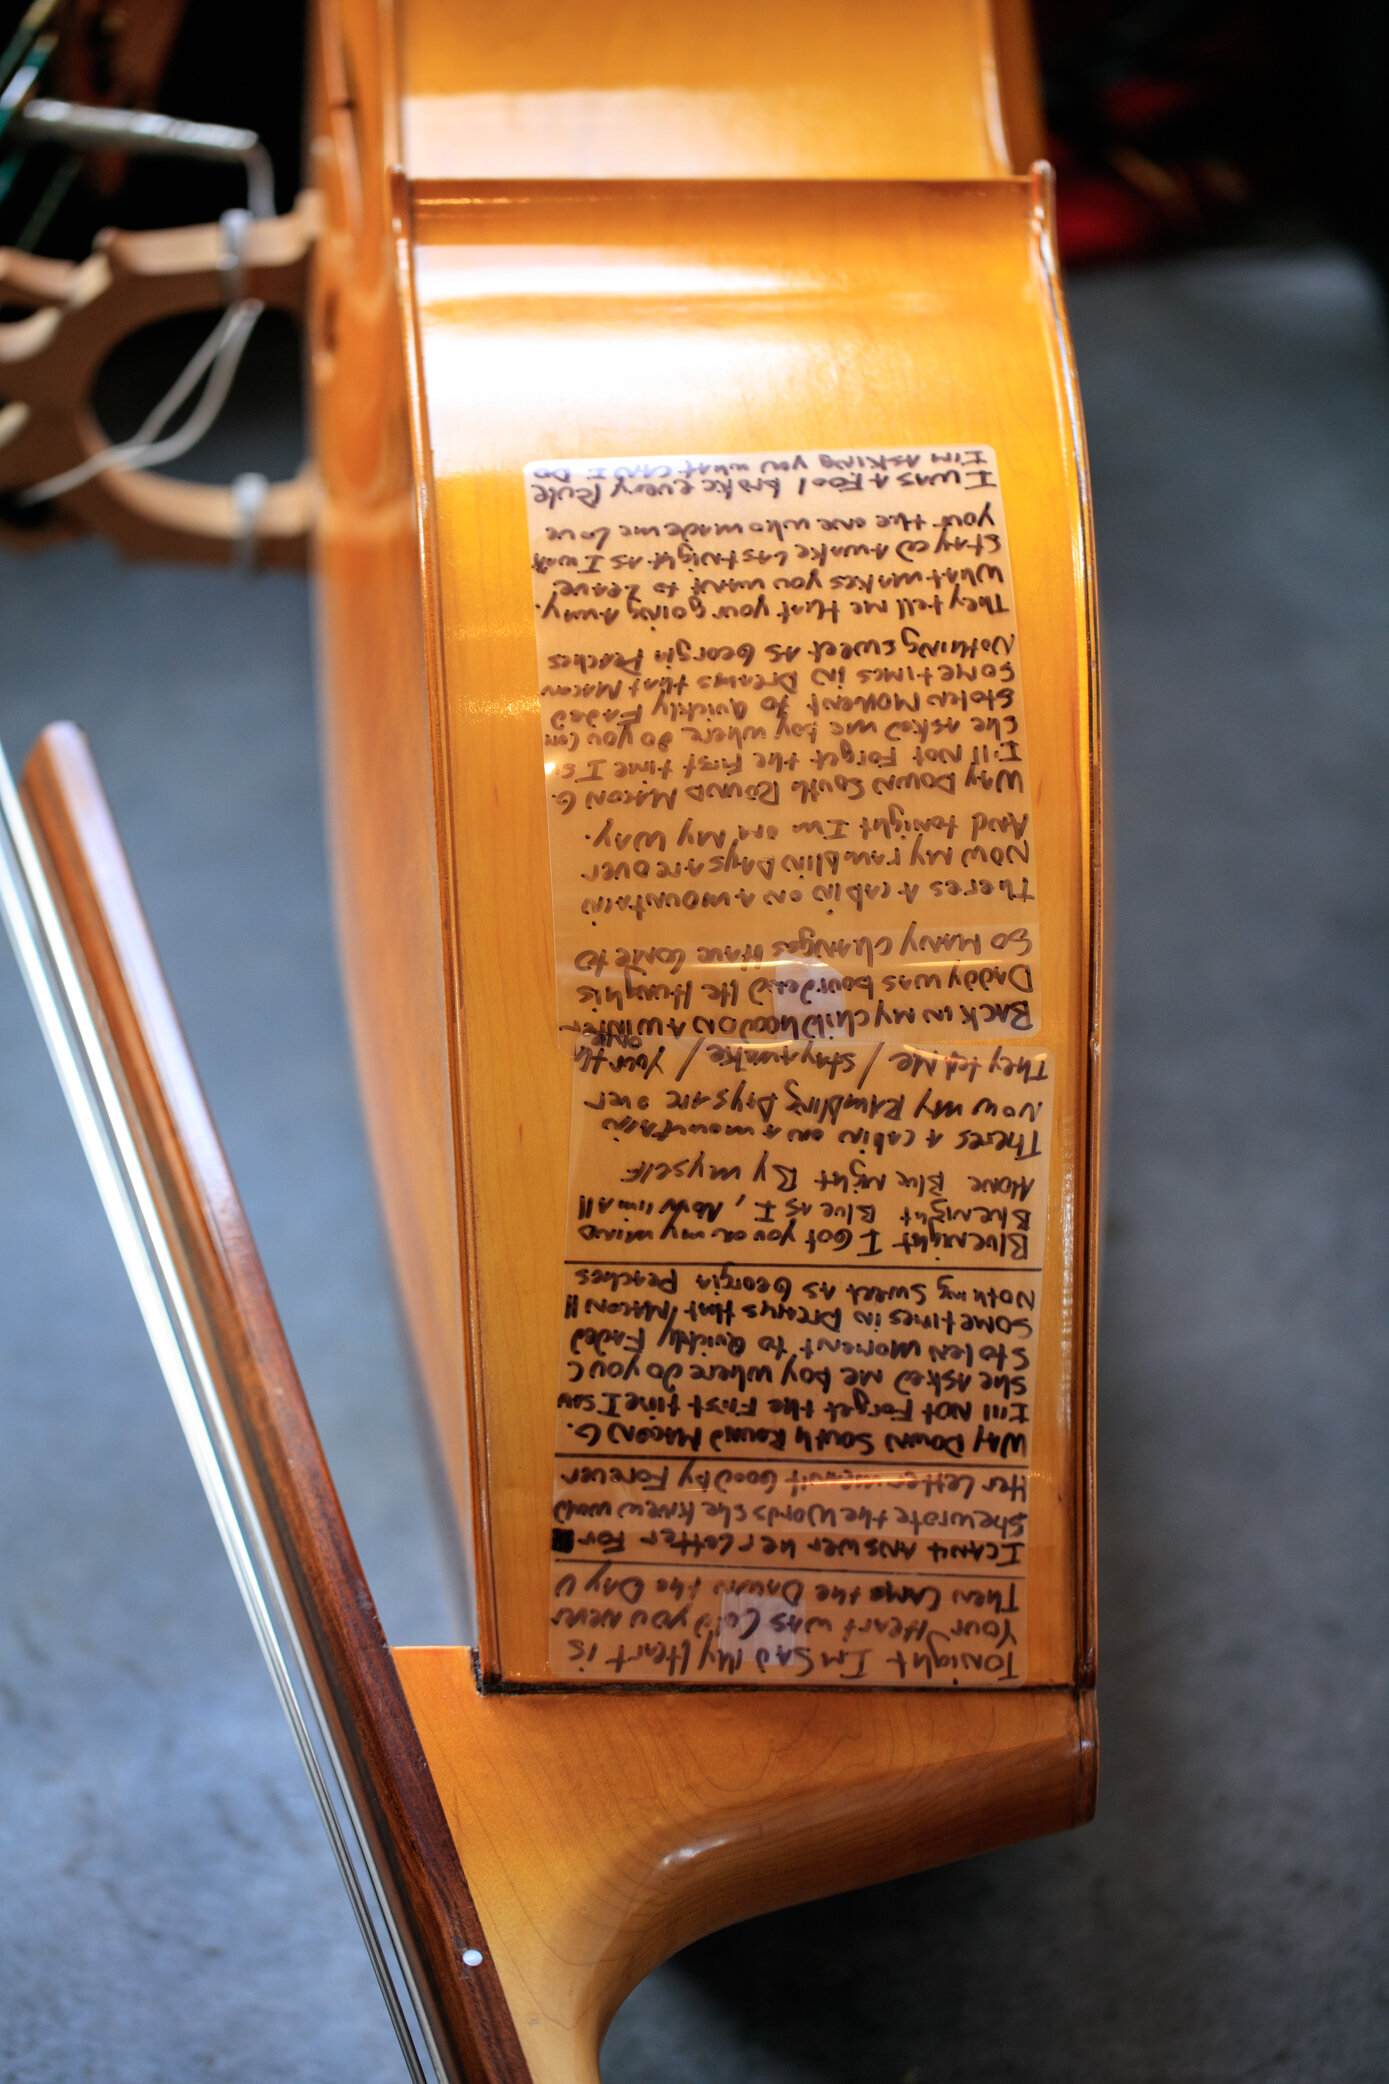 Tonight I'm Sad My Heart is
Your Heart was Cold you never
Then Came the Dawn the Day
I cant Answer her Letter For
She wrote the Words she knew
Her Letter meant Goodby Forever
Way Down South Round Macon G.
I'll Not Forget the First time I saw
She asked me boy where do you c
Stolen Moment to Quickly Faded
Sometimes in Dreams that Macon
Nothing Sweet as Georgia Peaches
Bluenight I Got you on my mind
Bluenight Blue as I, Now i'm all
Alone Blue Night By myself
Theres A cabin on A mountain
Now my Rambling Days are over
They tel Me / stay Awake / Your th one
Back in my childhood on A winter
Daddy was He Hung his
So many changes Have come to
Theres A cabin on A mountain
Now my ramblin Days are over
And tonight I'm on my way.
Way Down South Round Macon G.
I'll Not Forget the First time I s
She asked me boy where do you com
Stolen Moment to Quickly Faded
Sometimes in Dreams that Macon
Nothing sweet as Georgia Peaches
They tell me that your going Away.
What makes you want to Leave
Stayed Awake Last night as I walk
your the one who made me Love
I was A Fool broke every Rule
I'm asking you what can I do